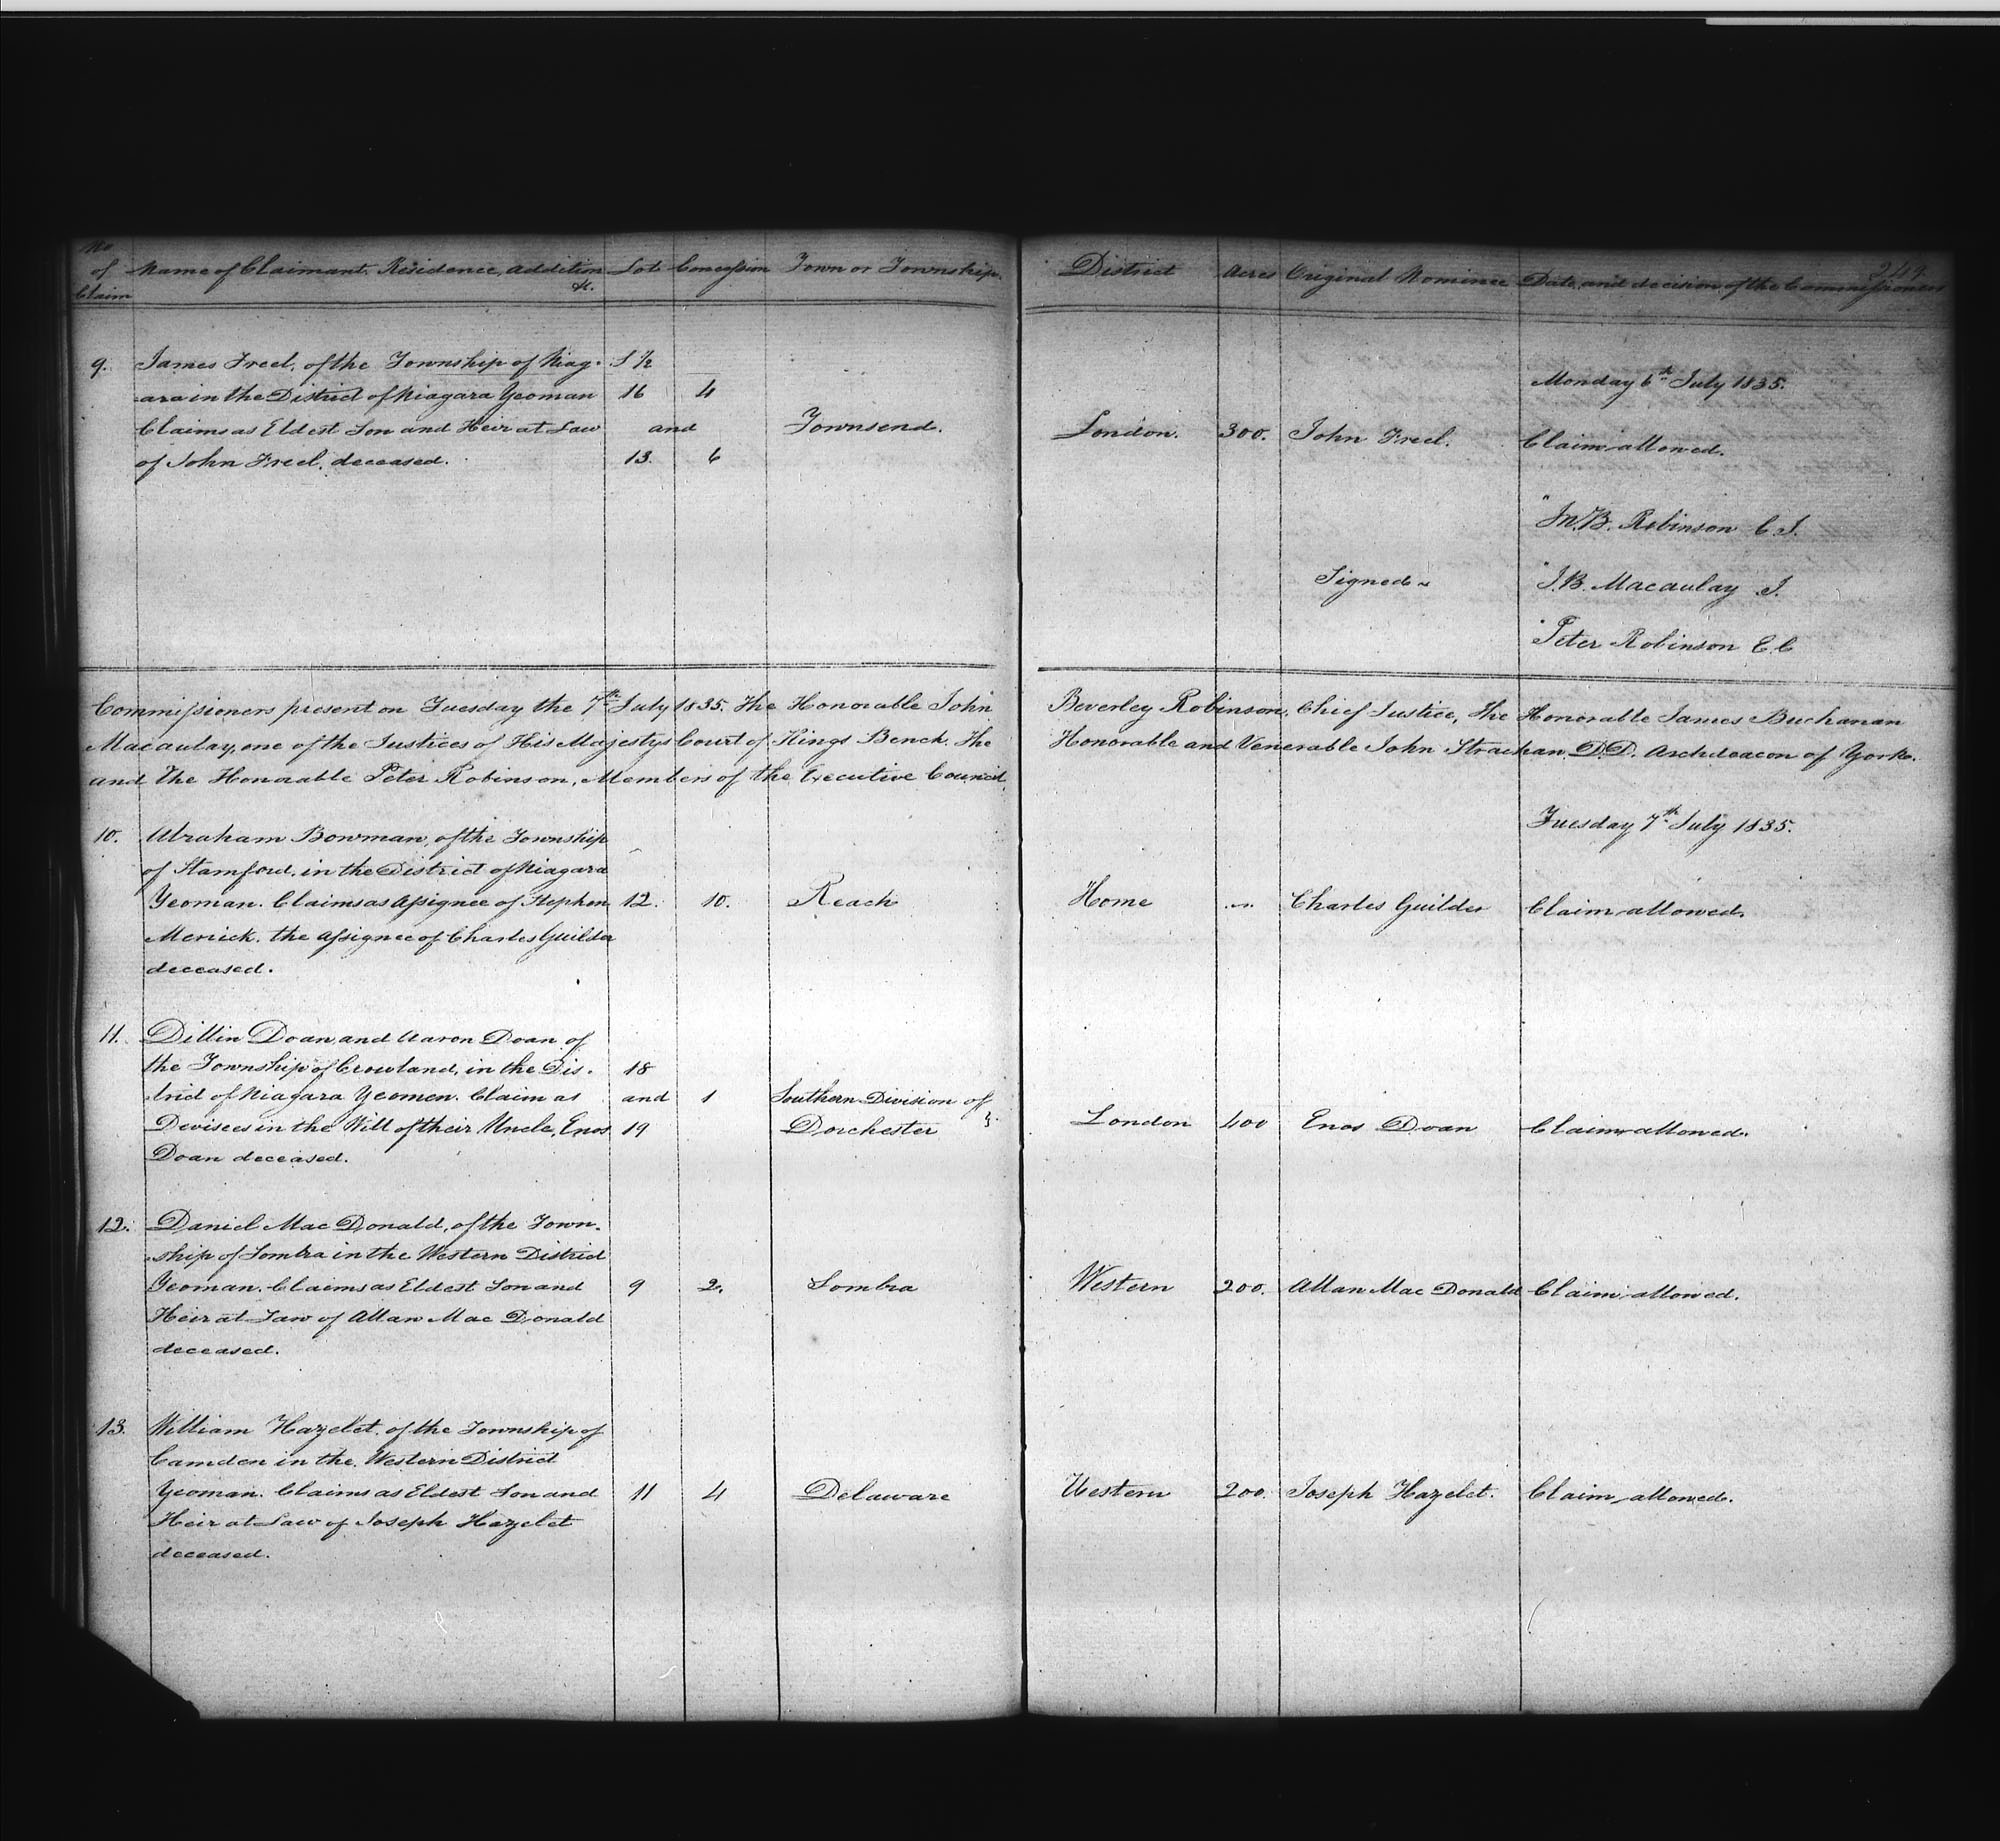 No of Claim | Name of Claimant, Residence, Addition &c. | Lot | Concession | Town or Township. | District | Acres | Original Nominee | Date, and decision of the Commissioners
249.
9. James Freel, of the Township of Niag- | S ½
ara in the District of Niagara Yeoman | 16 | 4 | Monday 6th July 1835.
Claims as Eldest Son and Heir at Law | and | Townsend. | London. | 300. | John Freel. | Claim allowed.
of John Freel, deceased. | 13. | 6
" Jn. B. Robinson C. J.
Signed " J. B. Macaulay J.
" Peter Robinson E. C
Commissioners present on Tuesday the 7th July 1835. The Honorable John Beverley Robinson, Chief Justice, The Honorable James Buchanan
Macaulay, one of the Justices of His Majestys Court of Kings Bench. The Honorable and Venerable John Strachan, D.D. Archdeacon of York.
and The Honorable Peter Robinson, Members of the Executive Council.
Tuesday 7th July 1835.
10. Abraham Bowman, of the Township
of Stamford, in the District of Niagara
Yeoman. Claims as Assignee of Stephen | 12. | 10. | Reach | Home | " | Charles Guilder | Claim allowed.
Merrick, the Assignee of Charles Guilder
deceased.
11. Dillin Doan, and Aaron Doan of
the Township of Crowland, in the Dis- | 18
trict of Niagara Yeomen. Claim as | and | 1 | Southern Division of
Devisees in the Will of their Uncle, Enos | 19 | Dorchester | London | 400 | Enos Doan | Claim allowed.
Doan deceased.
12. Daniel Mac Donald, of the Town-
ship of Sombra in the Western District
Yeoman. Claims as Eldest Son and | 9 | 2. | Sombra | Western | 200. | Allan Mac Donald | Claim allowed.
Heir at Law of Allan Mac Donald
deceased.
13. William Hazelet, of the Township of
Camden in the Western District
Yeoman. Claims as Eldest Son and | 11 | 4 | Delaware | Western | 200. | Joseph Hazelet. | Claim allowed.
Heir at Law of Joseph Hazelet
deceased.